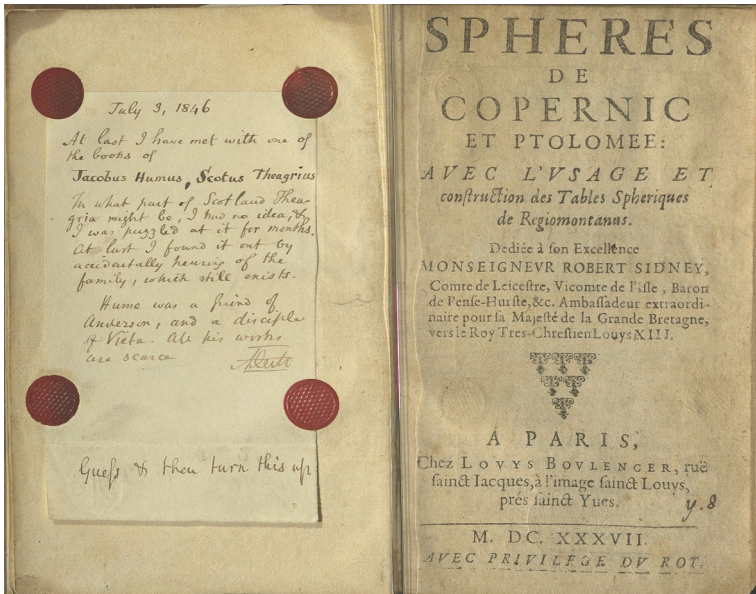 July 3, 1846
At last I have met with one of
the books of
Jacobus Humus, Scotus Theagrius
In what part of Scotland Thea-
gria might be, I had no idea, &
I was puzzled at it for months.
At last I found it out by
accidentally hearing of the
family, which still exists.
Hume was a friend of
Anderson, and a disciple
of Vieta. All his works
are scarce
Guess & then turn this up
SPHERES
DE
COPERNIC
ET PTOLOMEE:
AVEC L'VSAGE ET
construction des Tables Spheriques
de Regiomontanus.
Dediée à son Excellence
MONSEIGNEVR ROBERT SIDNEY,
Comte de Leicestre, Vicomte de l'isle, Baron
de Pense-Hurste, &c. Ambassadeur extraordi-
naire pour sa Majesté de la Grande Bretagne,
vers le Roy Tres-Chrestien Louys XIII.
A PARIS,
Chez LOVYS BOVLENGER, ruë
sainct Iacques, à l'image sainct Louys,
prés sainct Yues.
y.8
M. DC. XXXVII.
AVEC PRIVILEGE DV ROY.